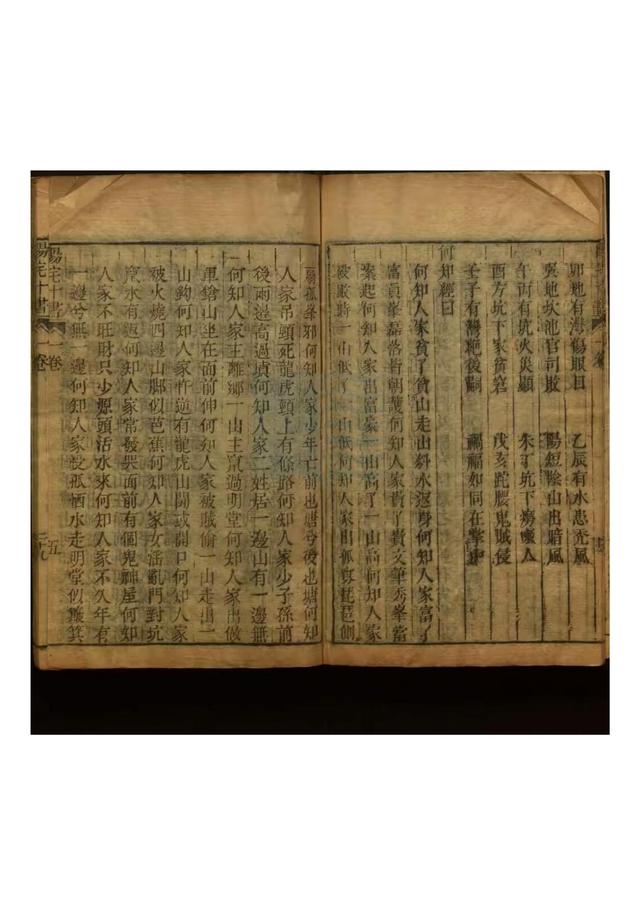 卯地有灣傷眼目 乙辰有水患禿風
巽地坎池官司敗 陽短陰山出暗風
午丙有坑火災顯 朱丁坑下癆瘵人
酉方坑下家貧窘 戊亥跎腰鬼賊侵
壬子有灣絶後嗣 禍福如同在掌中
何知經曰
何知人家貧了貧山走山斜水返身何知人家富了
富貢峯磊落皆朝護何知人家貴了貴文筆秀峯當
案起何知人家出富豪一山高了一山高何知人家
破敗時一山低了一山低何知人家出孤寡琵琶側
扇孤峯邪何知人家少年亡前也塘兮後也塘何知
人家吊頭死龍虎頸上有條路何知人家少子孫前
後兩邉高過墳何知人家二姓居一邉山有一邉無
何知人家主離鄉一山主竄過明堂何知人家出做
軍鎗山坐在面前伸何知人家被賊偷一山走出一
山鈎何知人家忤逆有龍虎山鬬或開口何知人家
被火燒四邉山脚似芭蕉何知人家女淫亂門對坑
窽水有返何知人家常發哭面前有個鬼神屋何知
人家不旺財只少源頭活水來何知人家不久年有
一邉兮無一邉何知人家受孤栖水走明堂似簸箕
陽宅十書 一卷 五